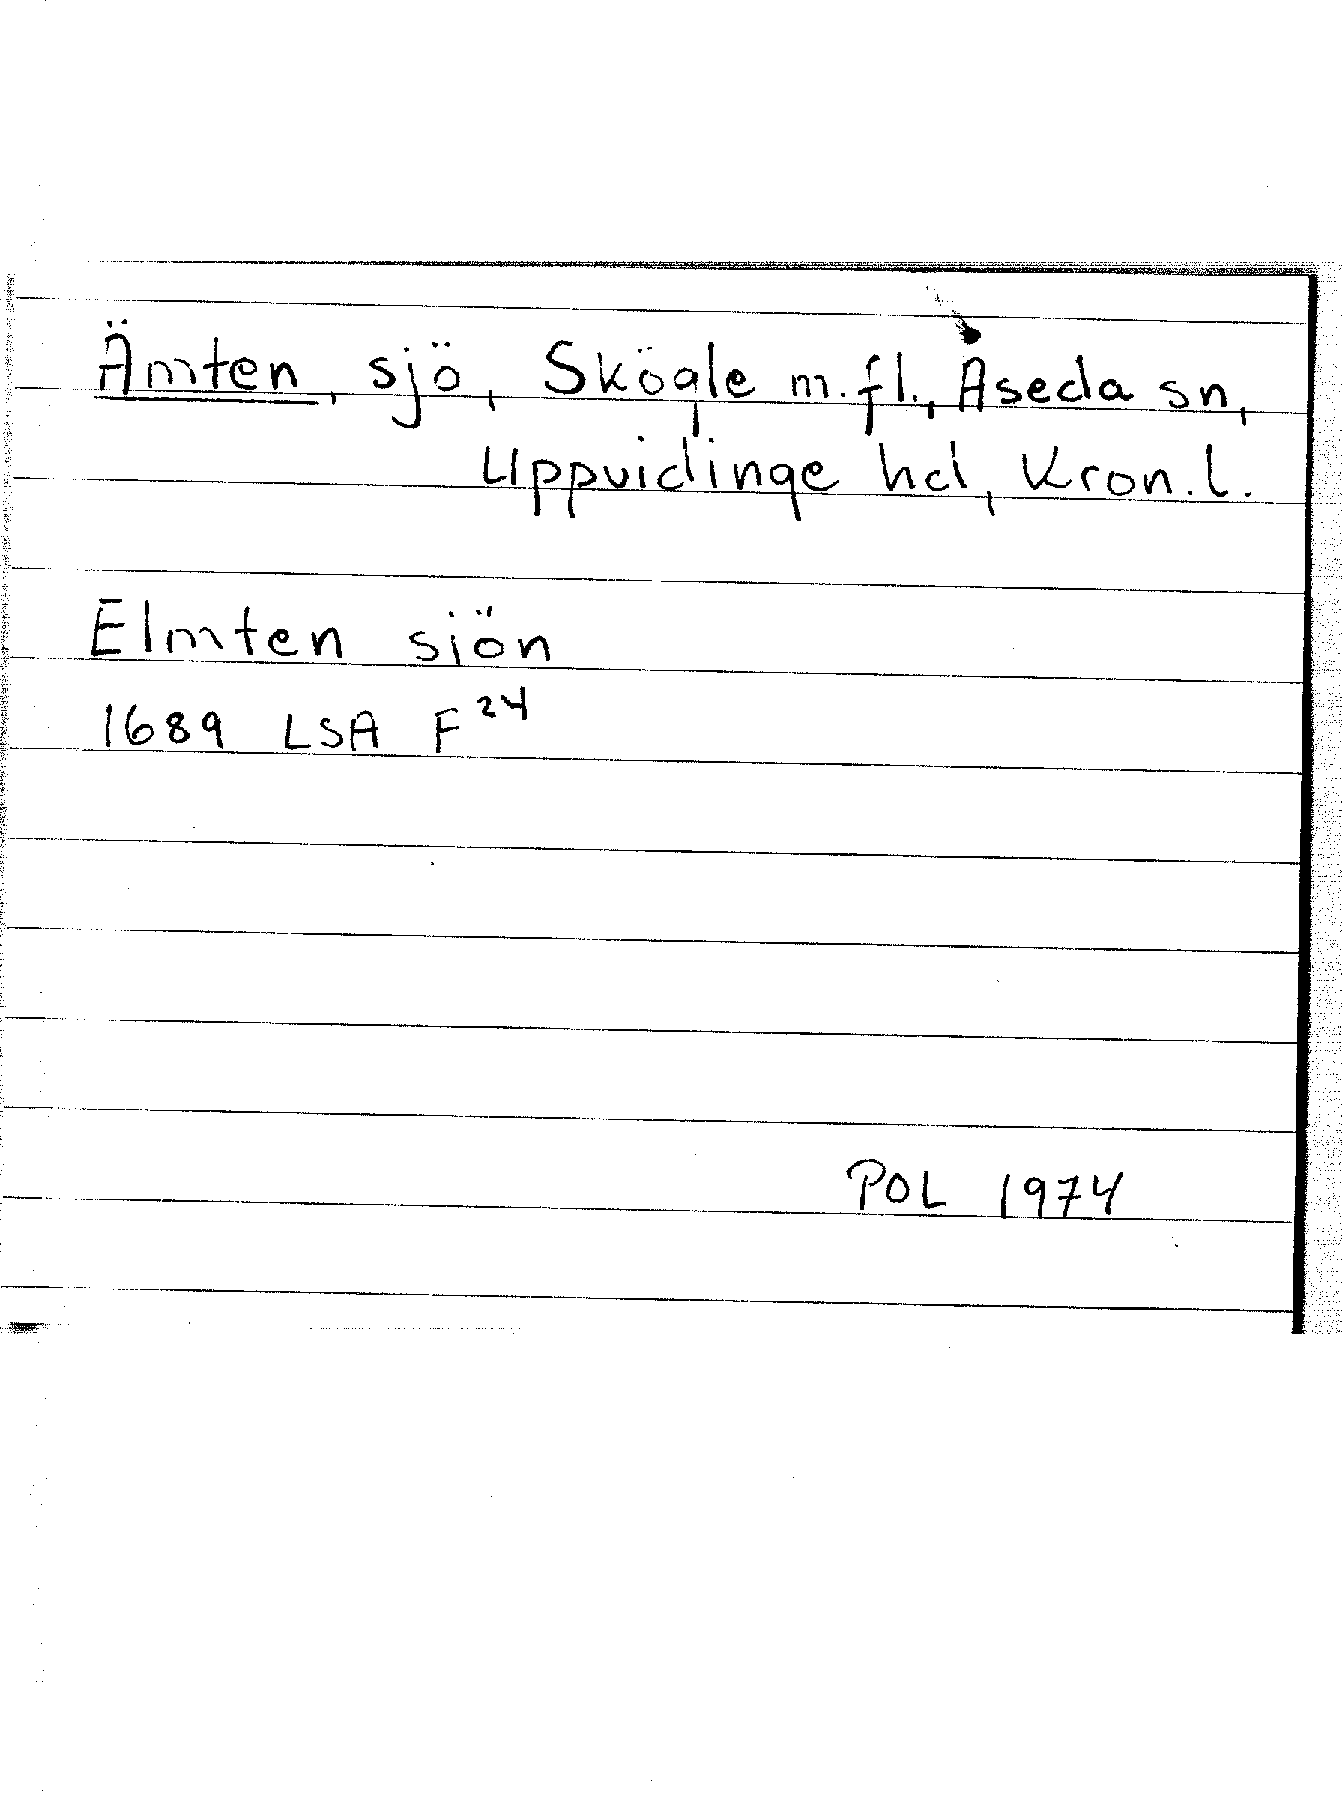 Ämten, sjö, Skögle m.fl., Åseda sn,
Uppvidinge hd, Kron.l.
Elmten siön
1689 LSA F 24
POL 1974